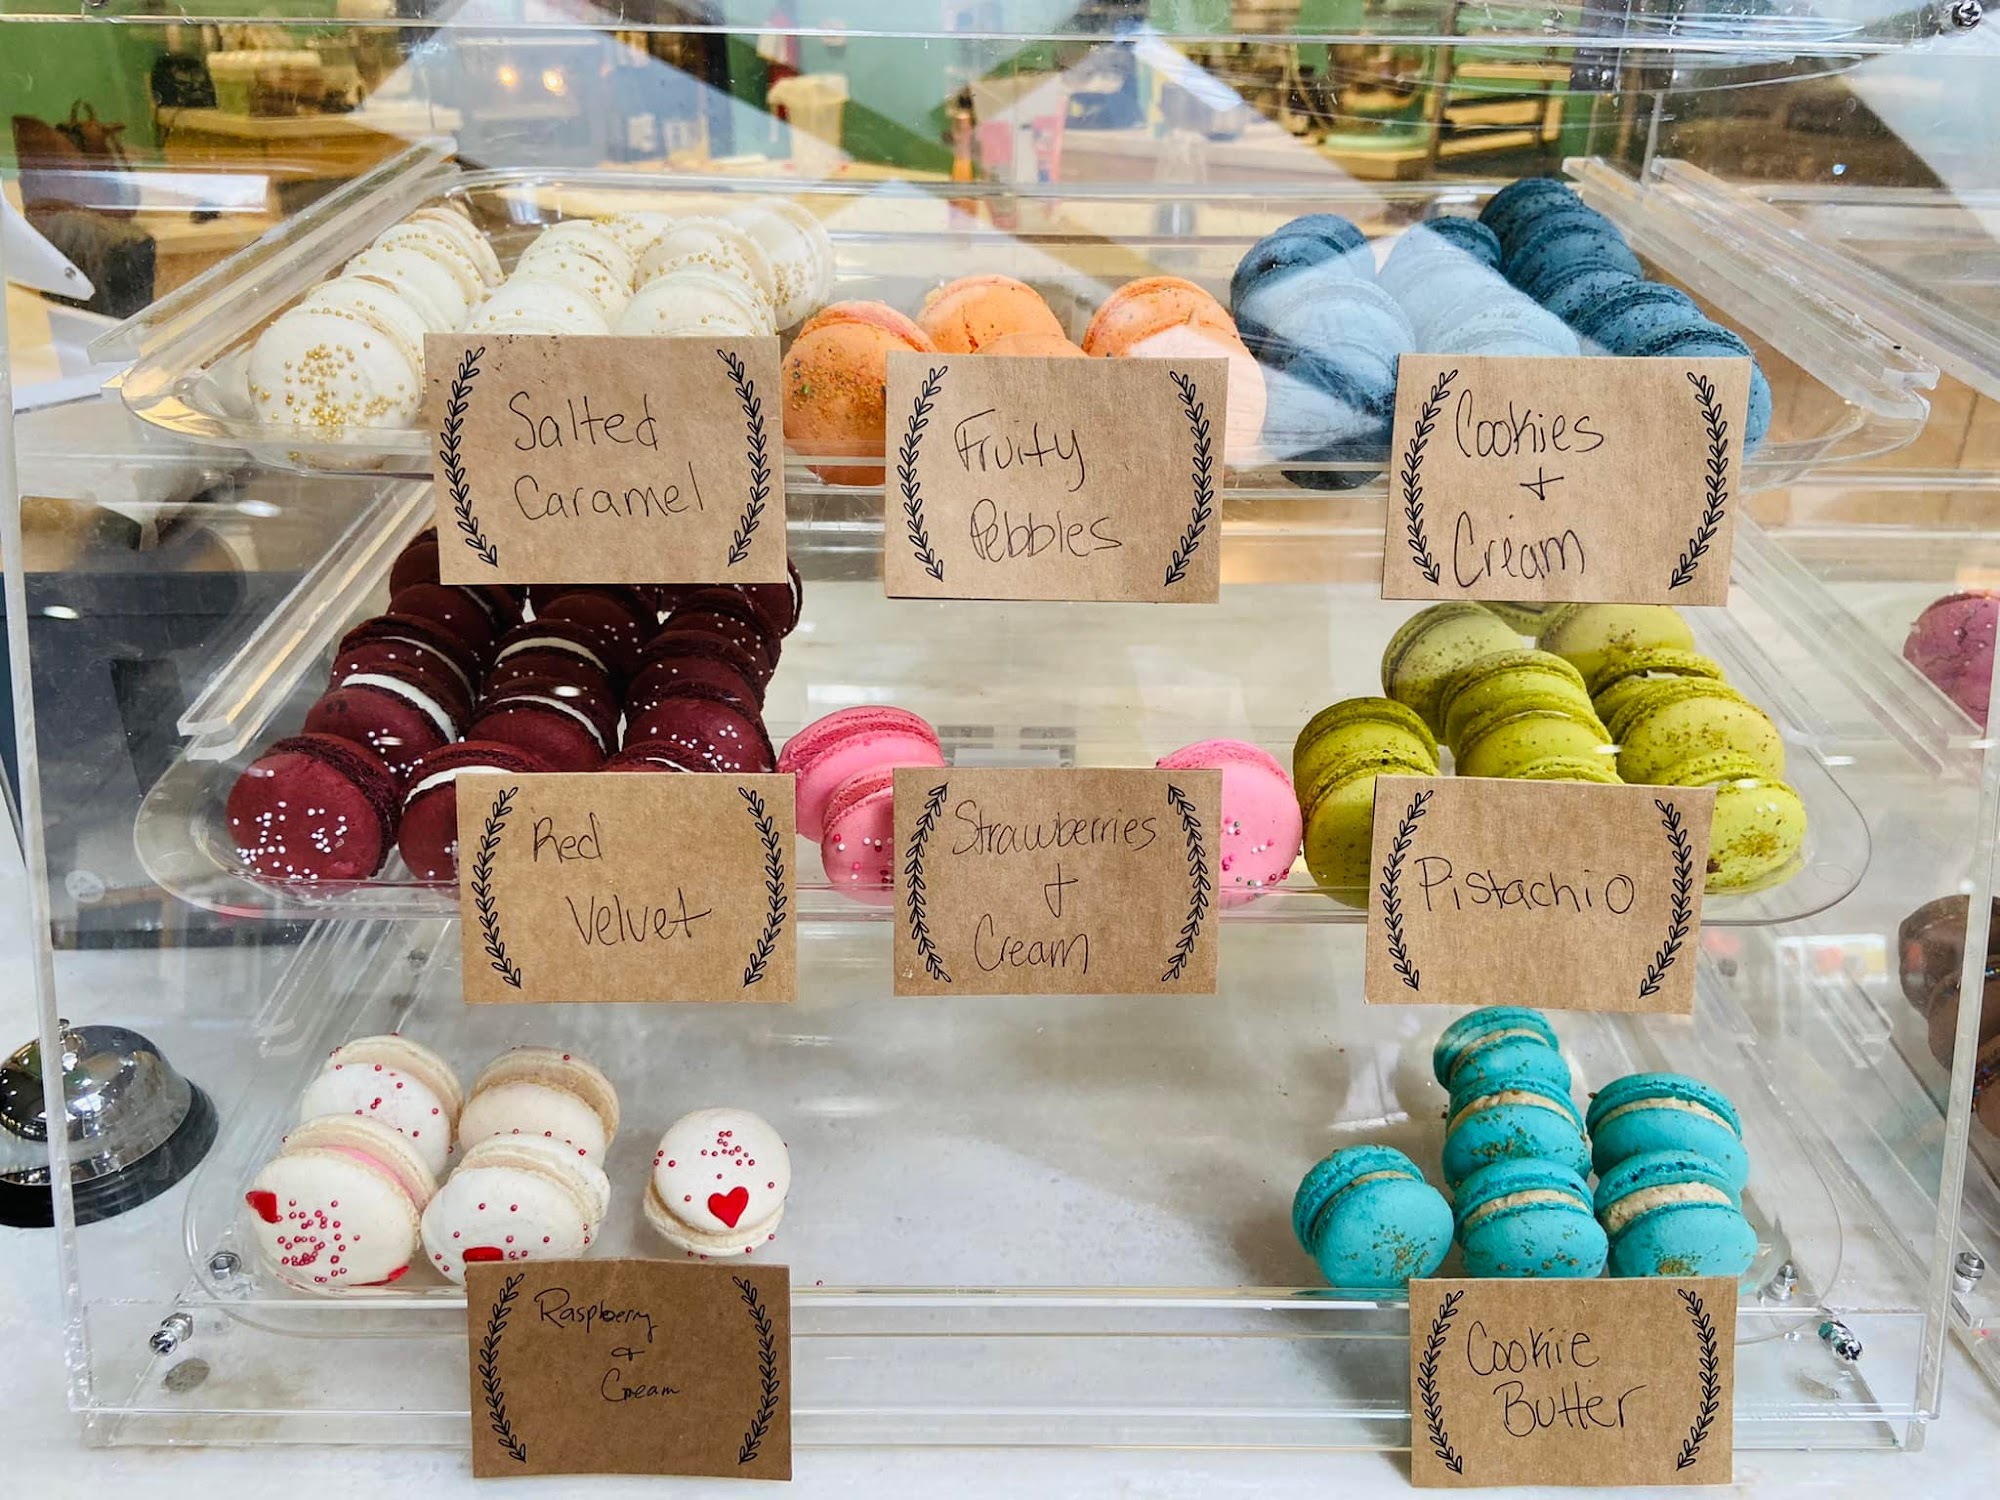 Salted
Caramel
Fruity
Pebbles
Cookies
+
Cream
Red
Velvet
Strawberries
+
Cream
Pistachio
Raspberry
+
Cream
Cookie
Butter